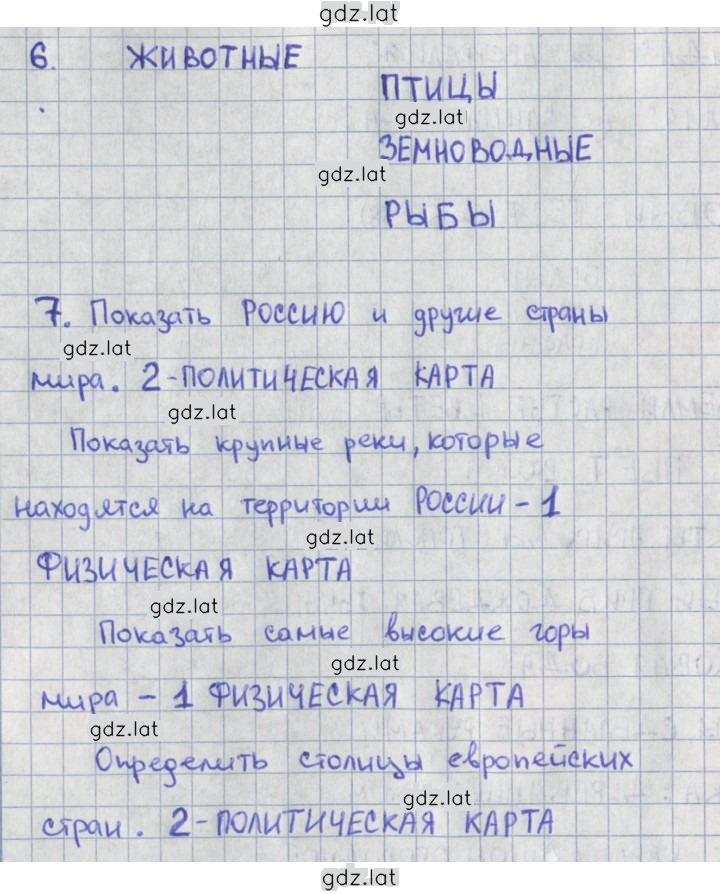 gdz.lat
6. ЖИВОТНЫЕ
ПТИЦЫ
gdz.lat
ЗЕМНОВОДНЫЕ
gdz.lat
РЫБЫ
7. Показать РОССИЮ и другие страны
gdz.lat
мира. 2-ПОЛИТИЧЕСКАЯ КАРТА
gdz.lat
Показать крупные реки, которые
находятся на территории РОССИИ - 1
gdz.lat
ФИЗИЧЕСКАЯ КАРТА
gdz.lat
Показать самые высокие горы
gdz.lat
мира - 1 ФИЗИЧЕСКАЯ КАРТА
gdz.lat
Определить столицы европейских
gdz.lat
стран. 2-ПОЛИТИЧЕСКАЯ КАРТА
gdz.lat